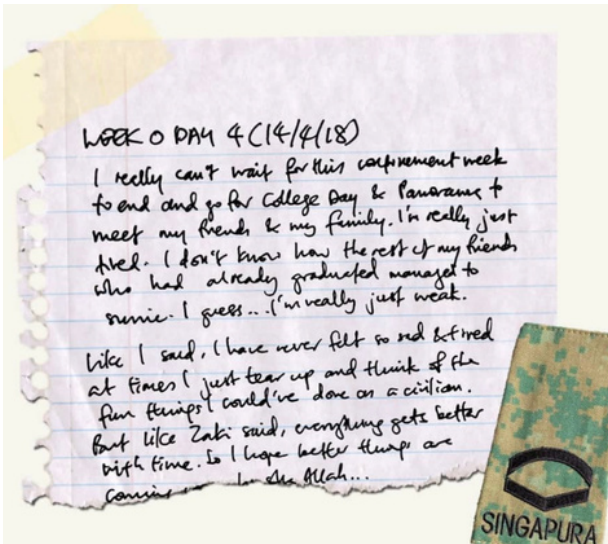 WEEK 0 DAY 4 (14/4/18)
I really can't wait for this confinement week
to end and go for College Day & Panorama to
meet my friends & my family. I'm really just
tired. I don't know how the rest of my friends
who had already graduated managed to
survive. I guess... I'm really just weak.
Like I said, I have never felt so sad & tired
at times I just tear up and think of the
fun things I could've done as a civilian.
But like Zaki said, everything gets better
with time. So I hope better things are
coming Allah...
SINGAPURA